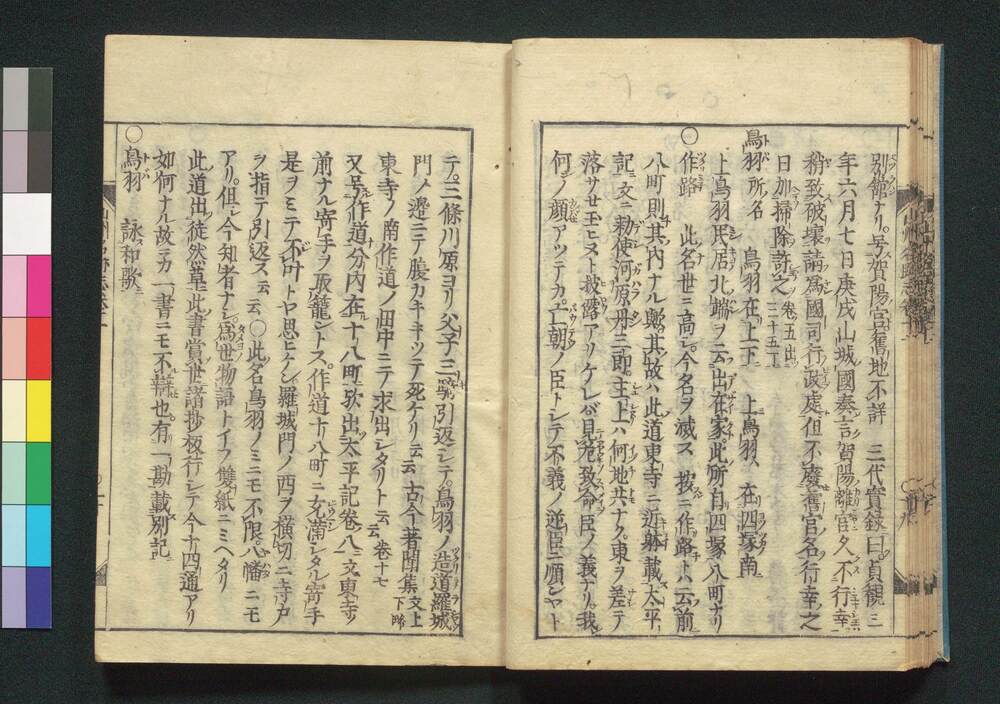 別館ナリ。号賀陽宮舊地不詳 三代實録曰。貞観三
年六月七日庚戌山城國奏言賀陽離宮久不行幸
稍致破壊請為國司行政處但不廢舊宮名行幸之
日加掃除許之 巻五出 三十五丁
鳥羽 所ノ名 鳥羽在上下 上鳥羽ハ 在四塚南
上鳥羽民居北端ヲ云出在家此所自四塚八町ナリ
○作路 此名世ニ高シ。今名ヲ滅ス 按ニ作路トハ云前
八町則其内ナル歟。其故ハ此道東寺ニ近躰載太平
記ニ文ニ勅使河原丹三郎主上ハ何地共ナク。東ヲ差テ
落サセ玉ヒヌト披露アリケレバ見危致命臣ノ義ナリ。我
何ノ顔アツテカ亡朝ノ臣トシテ不義ノ逆臣ニ順シヤト
テ。三條川原ヨリ父子三騎引返シテ。鳥羽ノ造道羅城
門ノ邊ニテ腹カキキツテ死ケリ云云 古今著聞集文上下略
東寺ノ南作道ノ田中ニテ求出シタリト云云 巻十七
又号作道分内在十八町歟出太平記巻八ニ文東寺ノ
前ナル寄手ヲ取籠シトス。作道十八町ニ充満シタル寄手
是ヲミテ不叶トヤ思ヒケン。羅城門ノ西ヲ横切ニ寺戸
ヲ指テ引返ス云云 ○此名鳥羽ノミニモ不限。八幡ニモ
アリ。但シ今知者ナシ。為世物語トイフ雙紙ニミヘタリ
此道出徒然草此書賞世諸抄板行シテ今十四通アリ
如何ナル故ニカ一書ニモ不辯也。有一勘載別記
○鳥羽 詠和歌